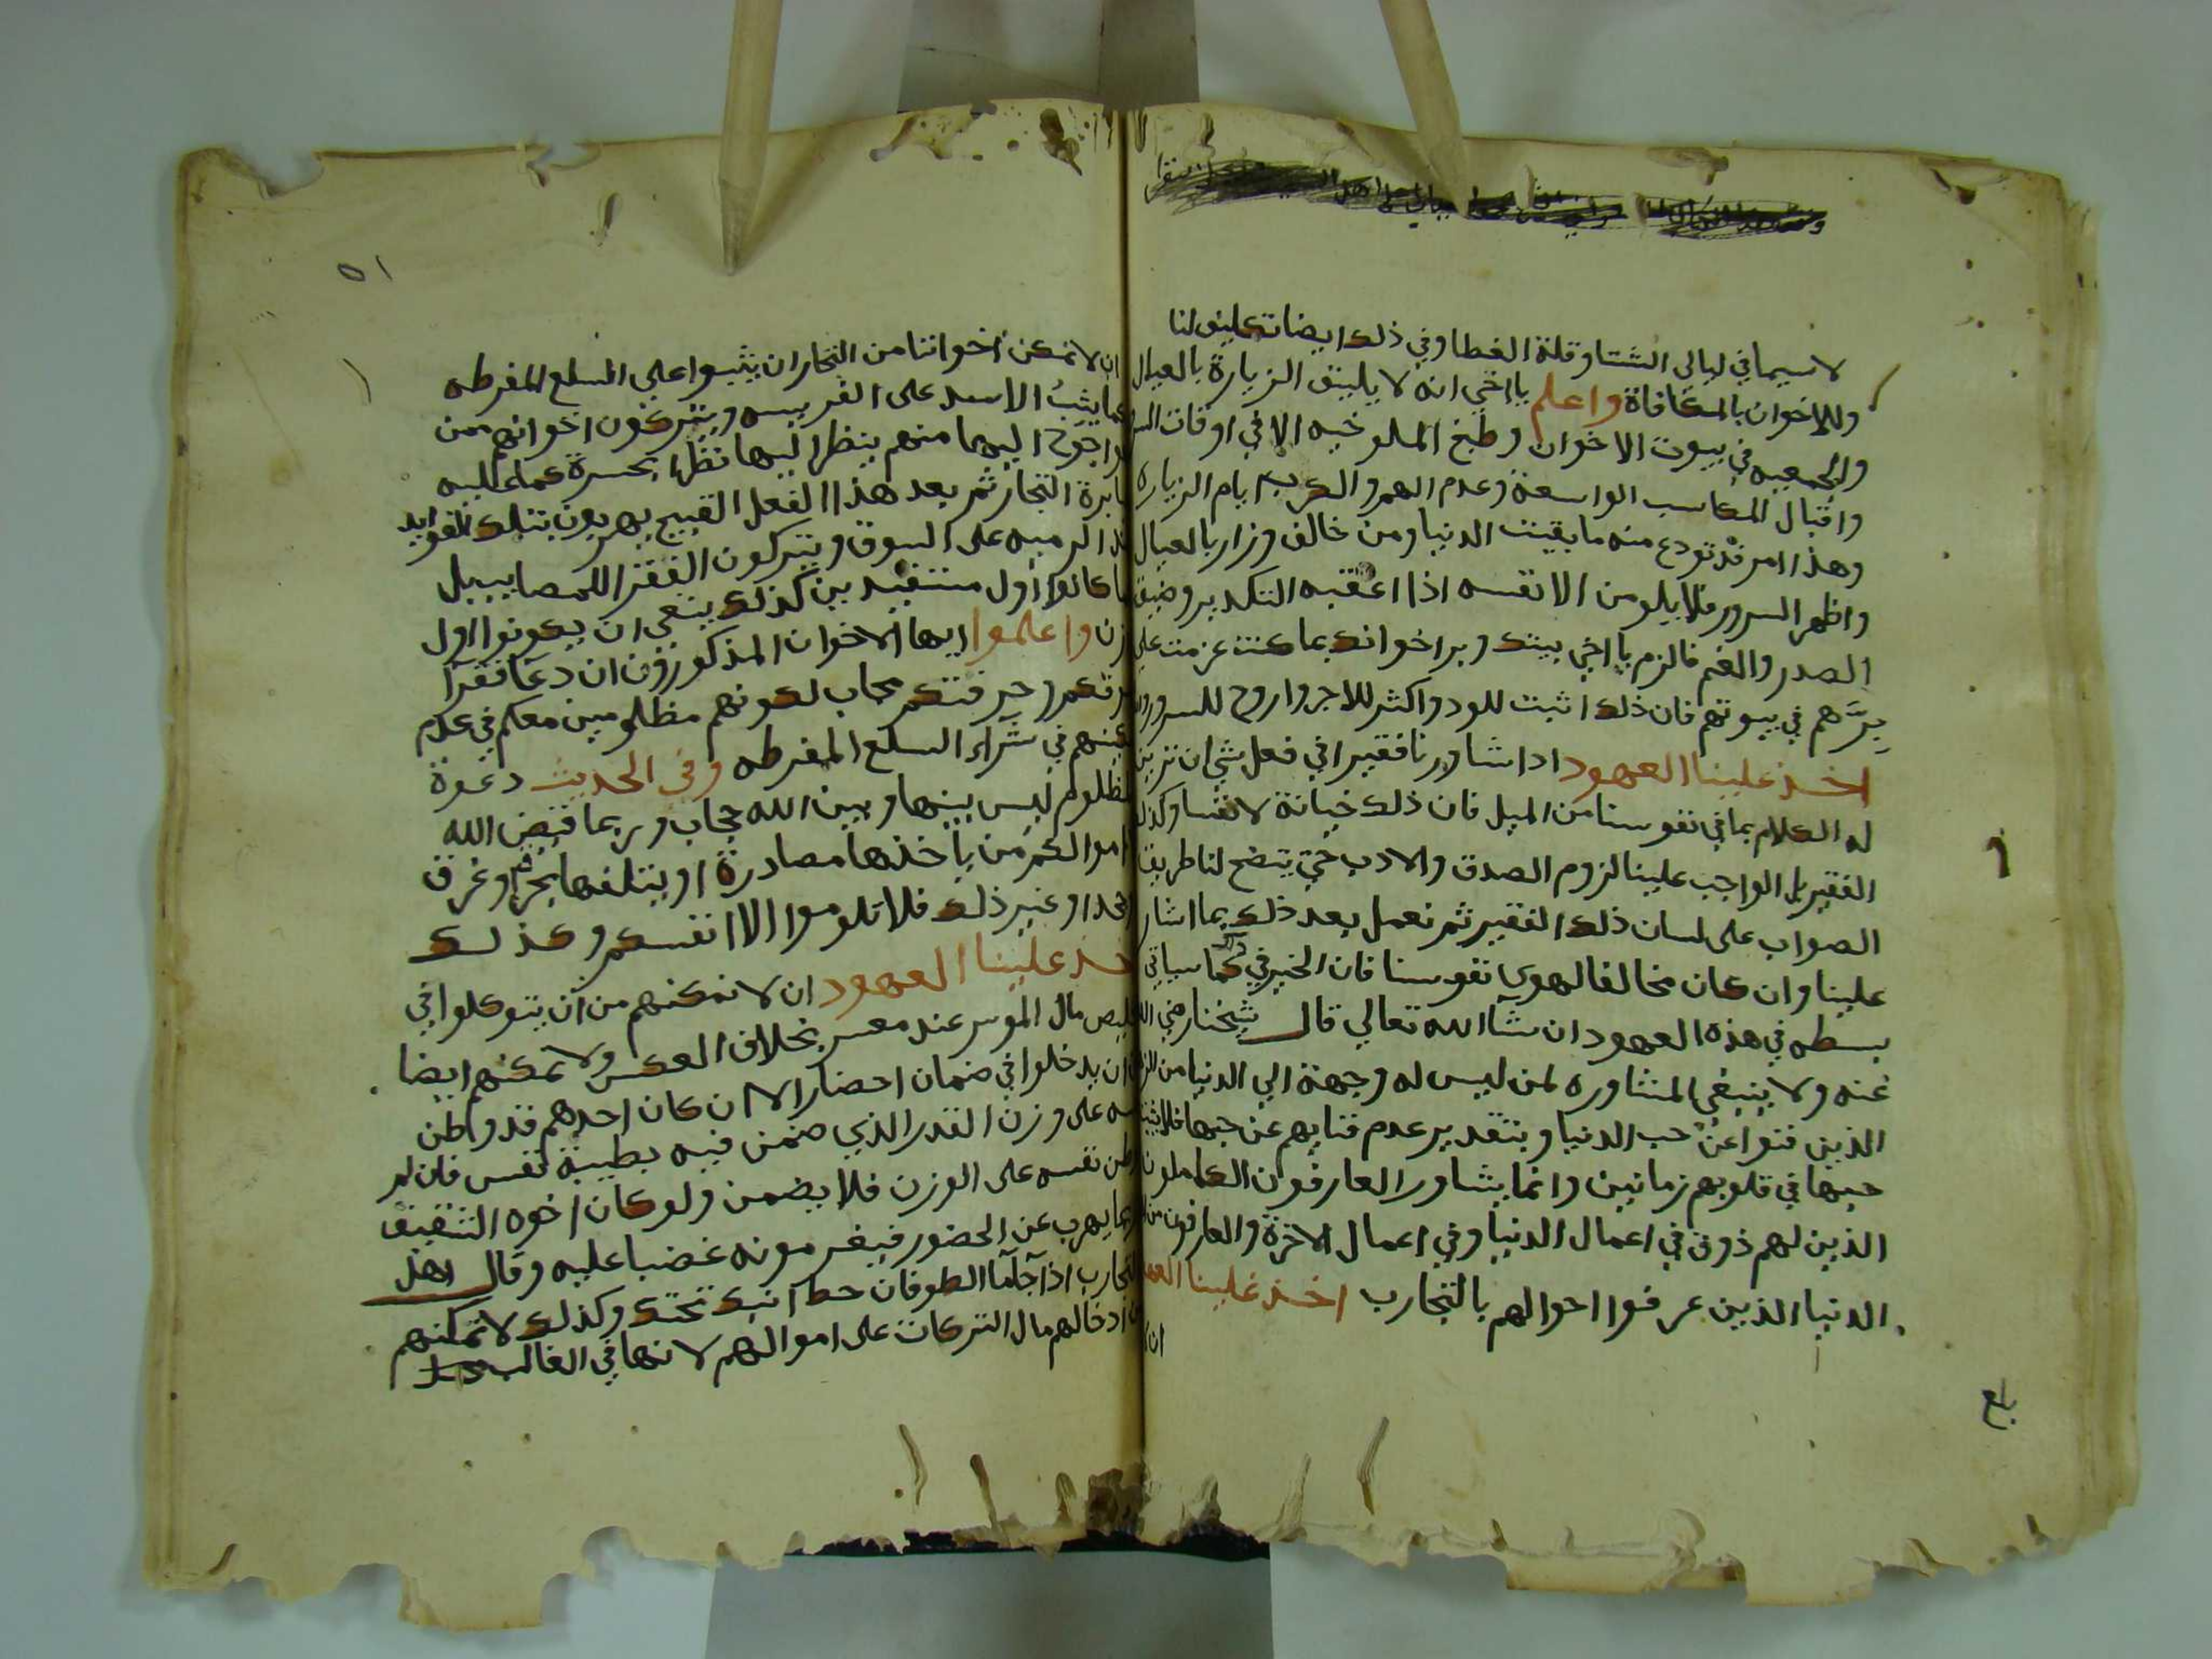 لاسيما في ليالي الشتا وقلة الغطا وفي ذلك ايضا تكليف لنا
وللاخوان بالمكافاة واعلم يا اخي انه لا يليق الزيارة بالعيال
والجمعيه في بيوت الاخوان وطبخ الملوخيه الا في اوقات
واقبال المكاسب الواسعة وعدم الهم والكرب ايام الزياره
وهذا امر قد تودع منه ما بقيت الدنيا ومن خالف وزار بالعيال
واظهر السرور فلا يلومن الا نفسه اذا اعقبه التكدير وضيق
الصدر والغم فالزم يا اخي بيتك وبر اخوانك بما كنت عزمت علي
برهم في بيوتهم فان ذلك اثبت للود واكثر للاجر واروح للسرور
اخذ علينا العهود اذا شاورنا فقير في فعل شي ان نزين
له الكلام بما في نفوسنا من الميل فان ذلك خيانة لانفسنا وكذلك
الفقير بل الواجب علينا لزوم الصدق والادب حتي يتضح لنا طريق
الصواب على لسان ذلك الفقير ثم نعمل بعد ذلك بما اشار
علينا وان كان مخالفا لهوي نفوسنا فان الخير في ذلك كما سياتي
بسطه في هذه العهود ان شآ الله تعالي قال شيخنا رضي الله
عنه ولا ينبغي المشاوره لمن ليس له وجهة الي الدنيا من
الذين فنوا عن حب الدنيا وبتقدير عدم فنايهم عن حبها فلا
حبها في قلوبهم زمانين وانما يشاور العارفون الكاملون
الذين لهم ذوق في اعمال الدنيا وفي اعمال الاخرة والعارفون من
الدنيا الذين عرفوا احوالهم بالتجارب اخذ علينا العهود
ان لا
بلغ
٥١
ان لا نمكن اخواننا من التجار ان يثبوا علي السلع المفرطه
كما يثب الاسد على الفريسه ويتركون اخوانهم ممن
احوج اليها منهم ينظر اليها نظرا بحسرة كما عليه
التجار ثم بعد هذا الفعل القبيح يهربون بتلك الفوايد
الرميه على السوق ويتركون الفقرا للمصايب بل
ما كانوا اول مستفيدين كذلك ينبغي ان يكونوا اول
وزن واعلموا ايها الاخوان المذكورون ان دعا فقرا
حرفتكم مجاب لكونهم مظلومين معكم في عدم
في شراء السلع المفرطه وفي الحديث دعوة
مظلوم ليس بينها وبين الله حجاب وربما قيض الله
اموالكم من ياخذها مصادرة او يتلفها بحرق وغرق
او غير ذلك فلا تلوموا الا انفسكم وكذلك
اخذ علينا العهود ان لا نمكنهم من ان يتوكلوا في
تخليص مال الموسر عند معسر بخلاف العكس ولا نمكنهم ايضا
ان يدخلوا في ضمان احضار الا ان كان احدهم قد وطن
نفسه على وزن القدر الذي ضمن فيه بطيبة نفس فان لم
يوطن نفسه على الوزن فلا يضمن ولو كان اخوه الشقيق
ربما يهرب عن الحضور فيغرمونه غضبا عليه وقال اهل
التجارب اذا جآما الطوفان حط ابنك تحتك وكذلك لا نمكنهم
من ادخالهم مال التركات على اموالهم لانها في الغالب